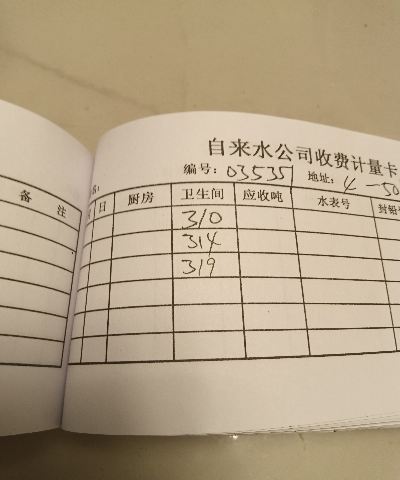 自来水公司收费计量卡
编号: 03535 地址: 4-50
备 注 日 厨房 卫生间 应收吨 水表号 封铅
310
314
319